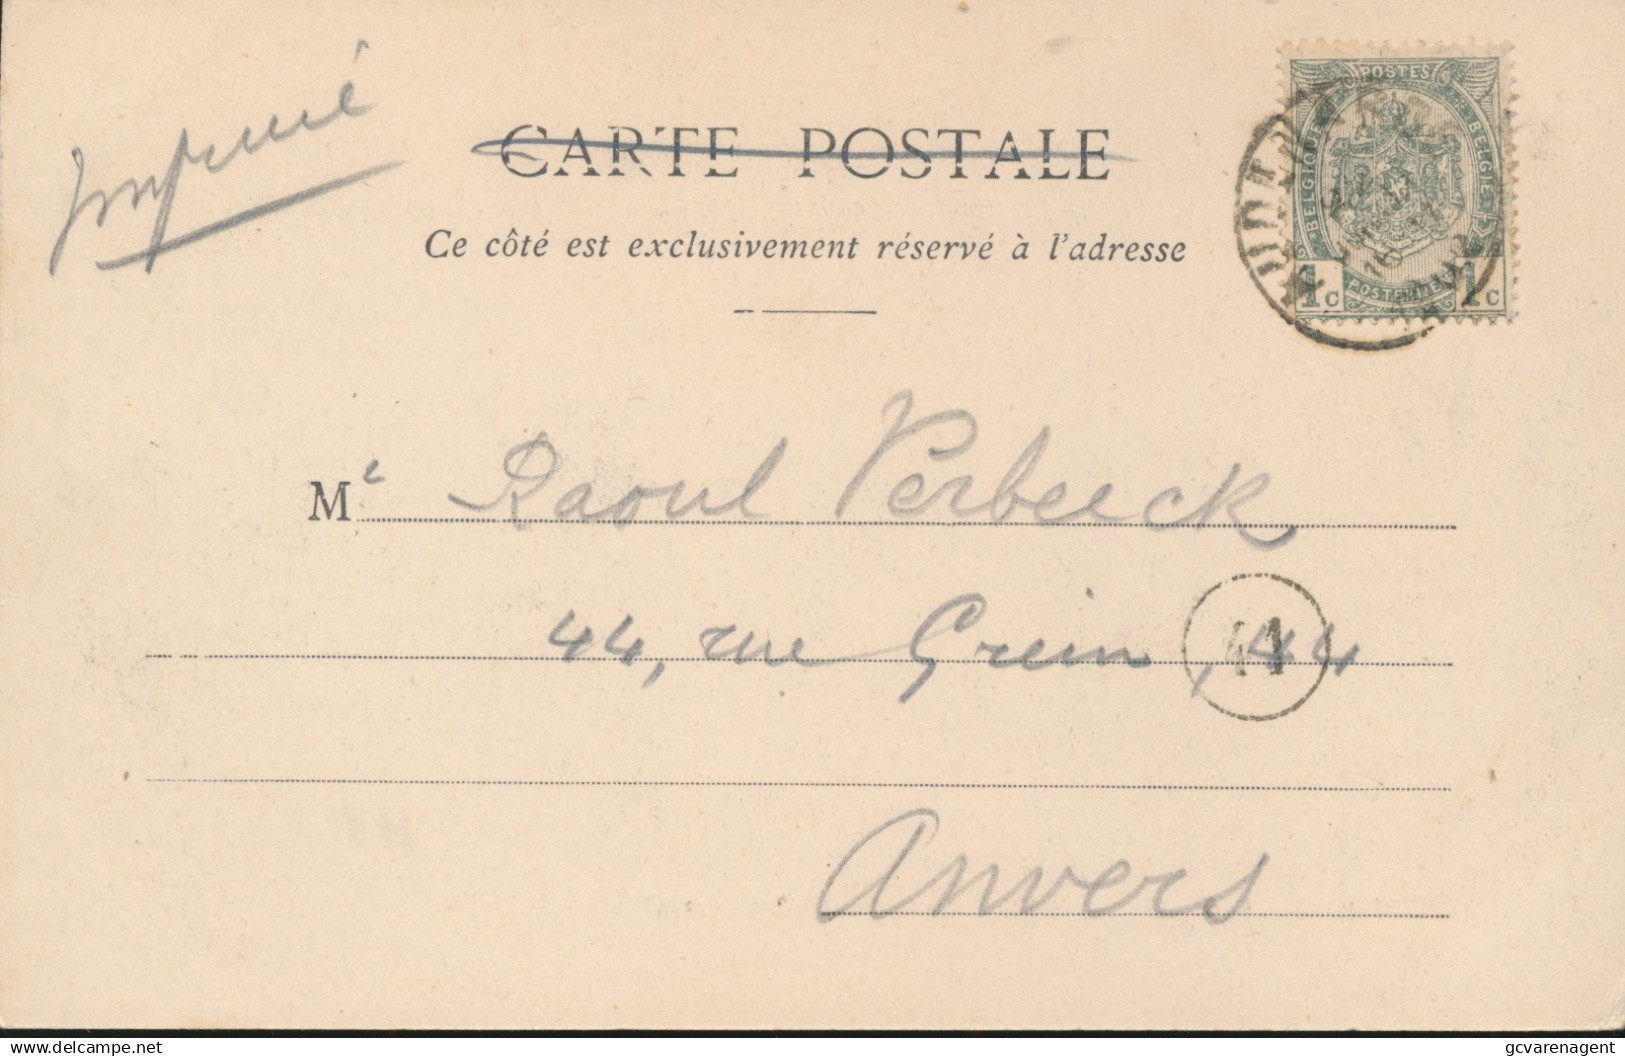 Imprimé
CARTE POSTALE
Ce côté est exclusivement réservé à l'adresse
POSTES
BELGIQUE
BELGIE
1c
1c
Mr Raoul Verbeeck
44, rue Grein, 44
41
Anvers
delcampe.net
gcvarenagent